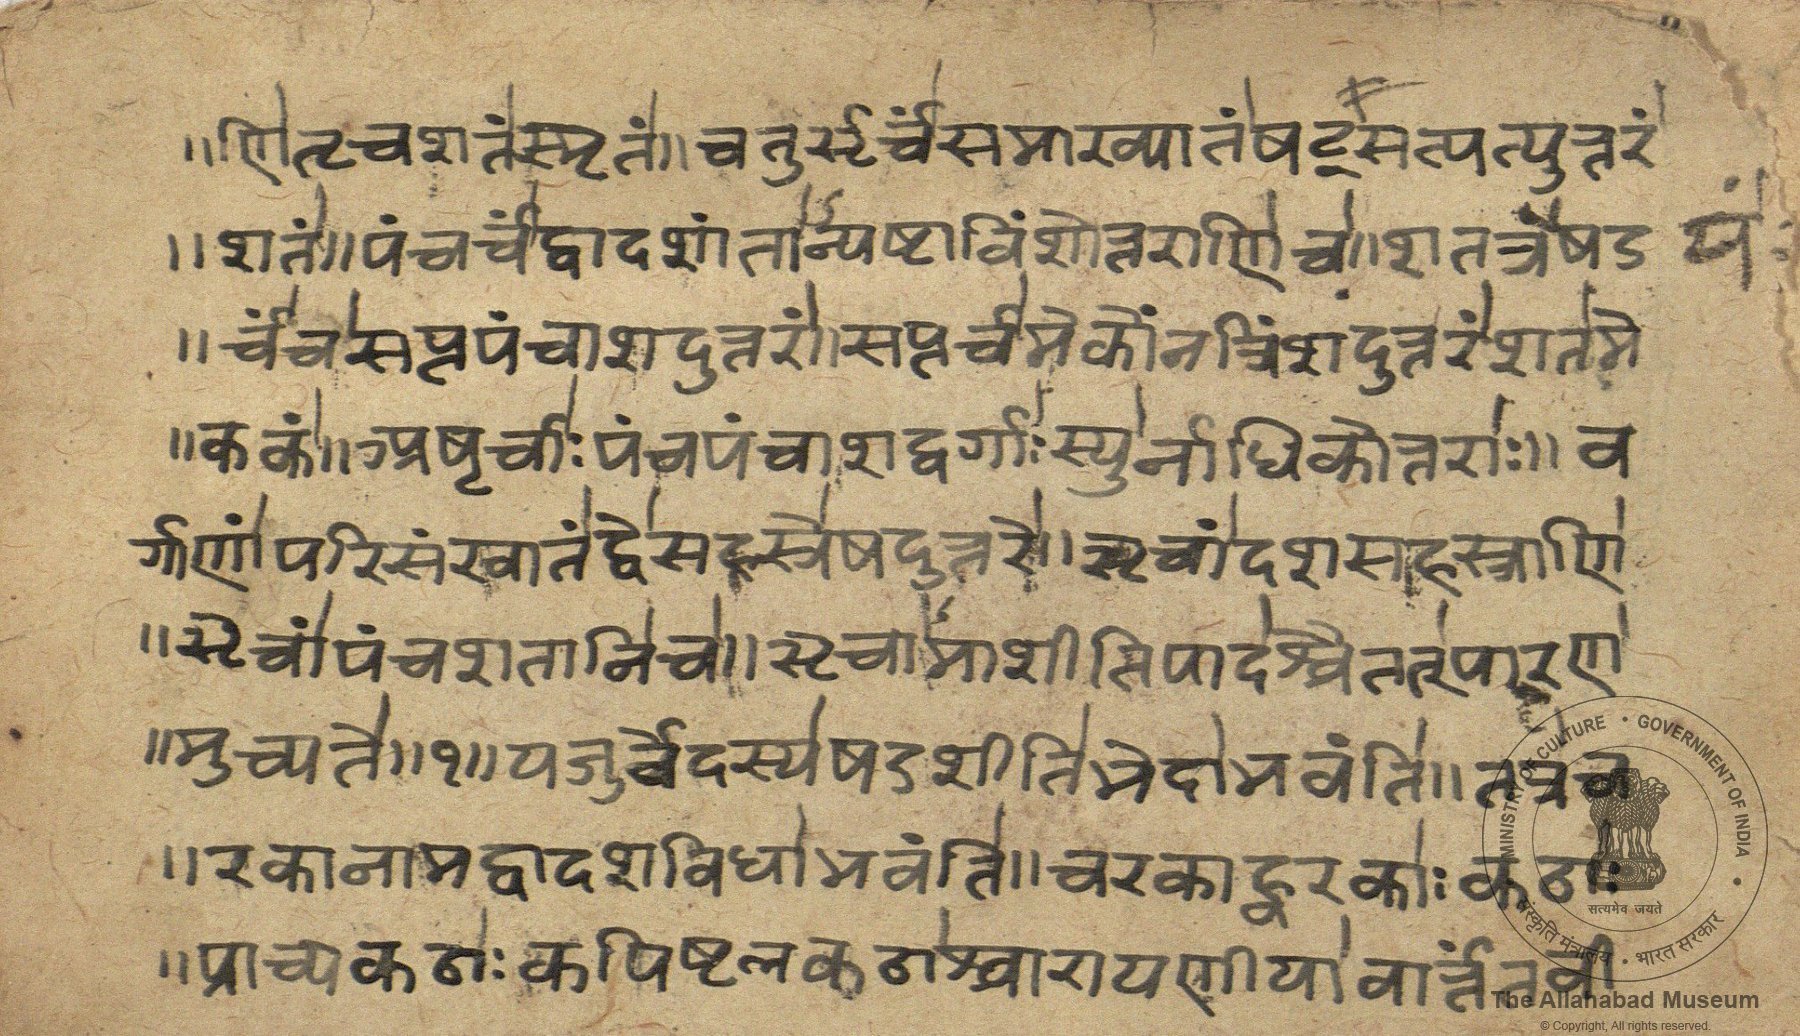 ॥णितृचशतंस्मृतं॥चतुर्ऋर्चंसमाख्यातंषट्सत्पत्युत्तरं
॥शतं॥पंचर्चंद्वादशांतान्यष्टाविंशोत्तराणिच॥शतत्रैषड यं
॥र्चंचसप्तपंचाशदुत्तरं॥सप्तर्चमेकोंनत्रिंशदुत्तरंशतमे
॥ककं॥अष्टर्चाः पंचपंचाशद्वर्गाः स्युर्नाधिकोत्तराः॥व
र्गाणांपरिसंख्यातंद्वेसहस्त्रेषदुत्तरे॥ऋचांदशसाहस्त्राणि
॥ऋचांपंचशतानिच॥ऋचामाशीतिपादश्चैतत्पारण
॥मुच्यते॥१॥यजुर्वेदस्यषडशीतिभेदाभवंति॥तत्रच
॥रकानामद्वादशविधाभवंति॥चरकाह्वरकाः कठाः
॥प्राच्यकठाः कपिष्टलकठाश्चारायणीयावार्त्तंतवी
MINISTRY OF CULTURE • GOVERNMENT OF INDIA
सत्यमेव जयते
संस्कृति मंत्रालय • भारत सरकार
The Allahabad Museum
© Copyright, All rights reserved.